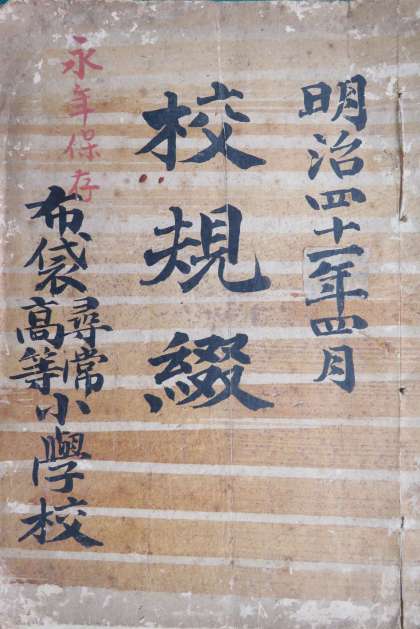 明治四十一年四月
校規綴
永年保存
布袋尋常高等小學校